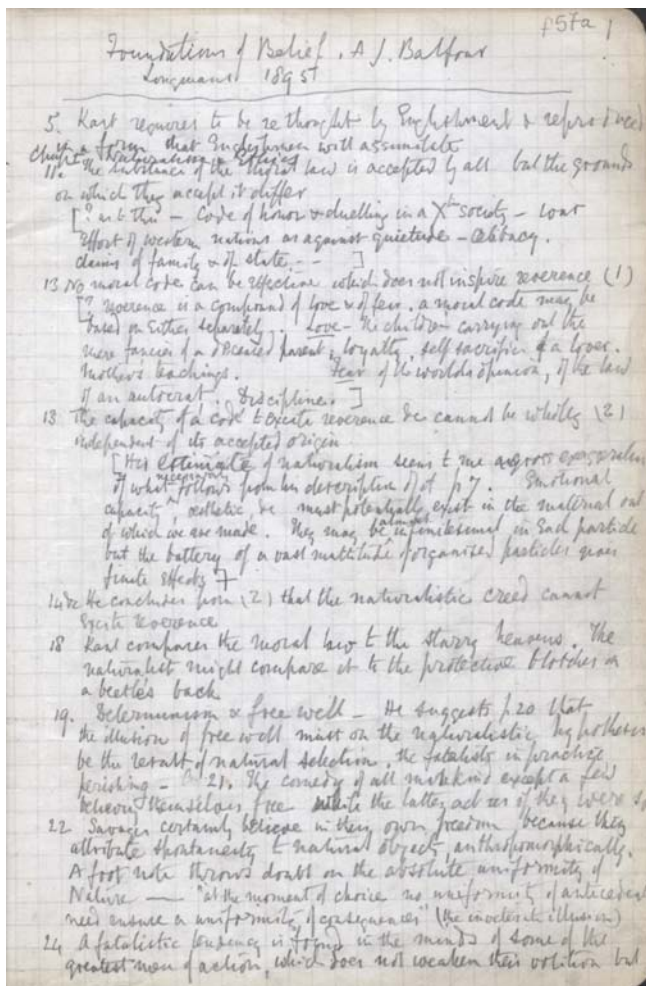 f57a 1
Foundations of Belief. A J. Balfour
Longmans 1895
5. Kant requires to be re thought by Englishmen & reproduced
in a form that Englishmen will assimilate
Chapt 1. Naturalism & Ethics
11. The substance of the moral law is accepted by all but the grounds
on which they accept it differ
[? is this – Code of honor & duelling in a Xtn society –
Effort of western nations as against quietude – celibacy.
claims of family & of state. - - ]
13 No moral code can be effective which does not inspire reverence (1)
[? reverence is a compound of love & of fear. a moral code may be
based on either separately. Love – the children carrying out the
mere fancies of a deceased parent, loyalty, self sacrifice of a lover.
Mothers teachings. Fear of the worlds opinion, of the law
of an autocrat. Discipline. ]
13 The capacity of a code to excite reverence &c cannot be wholly (2)
independent of its accepted origin
[His estimate of naturalism seems to me a gross exaggeration
of what necessarily follows from his description of it p 7. Emotional
capacity, aesthetic &c must potentially exist in the material out
of which we are made. They may be almost infinitesimal in Each particle
but the battery of a vast multitude of organised particles gives
finite effects]
14 &c He concludes from (2) that the naturalistic creed cannot
Excite reverence
18 Kant compares the moral law to the starry heavens. The
naturalist might compare it to the protective blotches on
a beetle's back
19. Determinism & free will – He suggests p.20 that
the illusion of free will must on the naturalistic hypothesis
be the result of natural selection, the fatalists in practice
perishing – 21. The comedy of all mankind except a few
believing themselves free while the latter act as if they were so
22 Savages certainly believe in their own freedom because they
attribute spontaneity to natural objects, anthropomorphically.
A foot note throws doubt on the absolute uniformity of
Nature — "at the moment of choice no uniformity of antecedent
need ensure a uniformity of consequences" (the illusion)
24 A fatalistic tendency is found in the minds of some of the
greatest men of action, which does not weaken their volition but